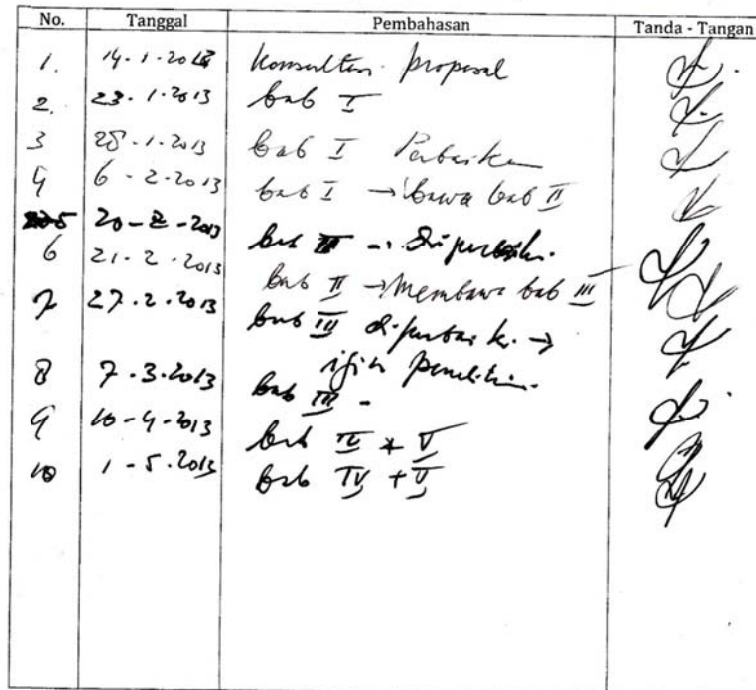 No. Tanggal Pembahasan Tanda - Tangan
1. 14-1-2013 Konsultasi proposal
2. 23-1-2013 bab I
3 28-1-2013 bab I Perbaikan
4 6-2-2013 bab I → bawa bab II
5 20-2-2013 bab II → diperbaiki.
6 21-2-2013 bab II → Membawa bab III
7 27.2.2013 bab III diperbaiki →
ijin penelitian.
8 7.3.2013 bab III -
9 10-4-2013 bab IV + V
10 1-5-2013 bab IV + V